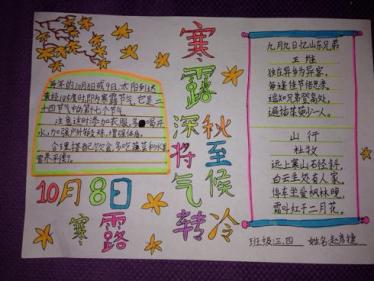 每年的10月8日或9日,太阳到达
黄经195度时,即为寒露节气,它是二
十四节气中第十七个节气
注意适时添加衣服,多喝开
水,加强户外锻炼,增强体质。
合理搭配饮食,多吃蔬菜和水果
营养平衡。
10月8日
寒露
寒露
深秋
将至
气候
转冷
九月九日忆山东兄弟
王维
独在异乡为异客,
每逢佳节倍思亲。
遥知兄弟登高处,
遍插茱萸少一人。
山行
杜牧
远上寒山石径斜,
白云生处有人家。
停车坐爱枫林晚,
霜叶红于二月花。
班级 三.四 姓名